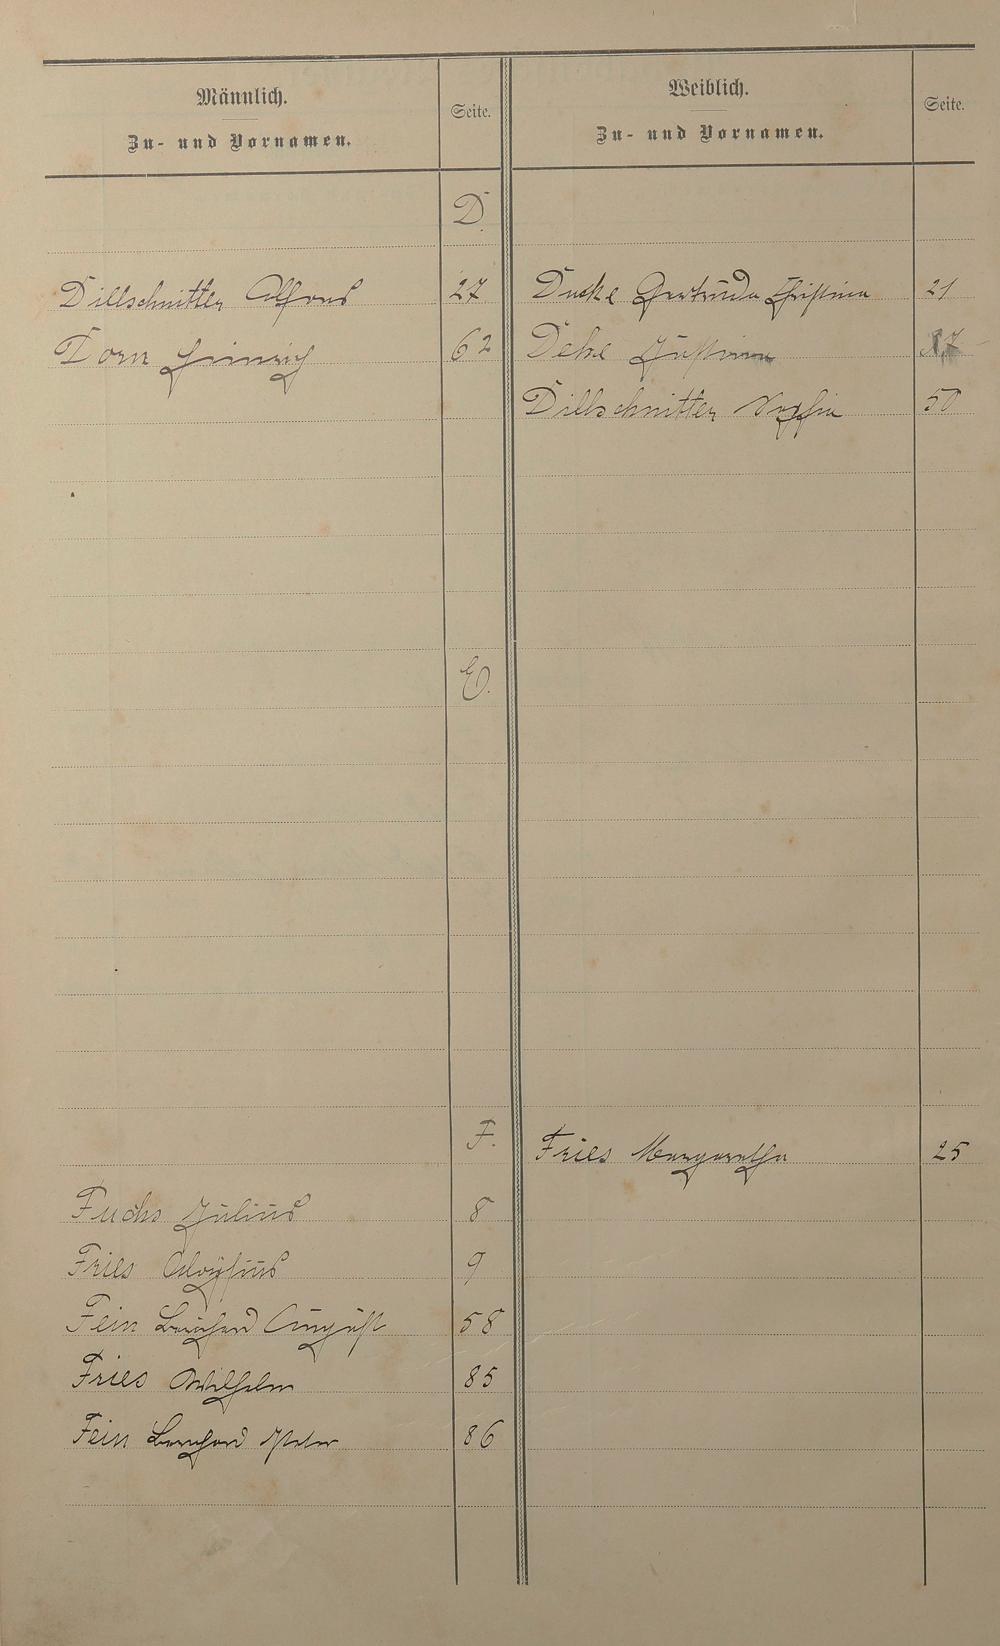 Männlich.
Zu- und Vornamen.
Seite.
Weiblich.
Zu- und Vornamen.
Seite.
D.
Dillschnitter Alfons 27
Ducke Gertruda Christina 21
Dorn Heinrich 62
Deke Justina
Dillschnitter Sophia 50
E.
F.
Fries Margaretha 25
Fuchs Julius 8
Fries Aloysius 9
Fein August 58
Fries Wilhelm 85
Fein Bernhard Peter 86